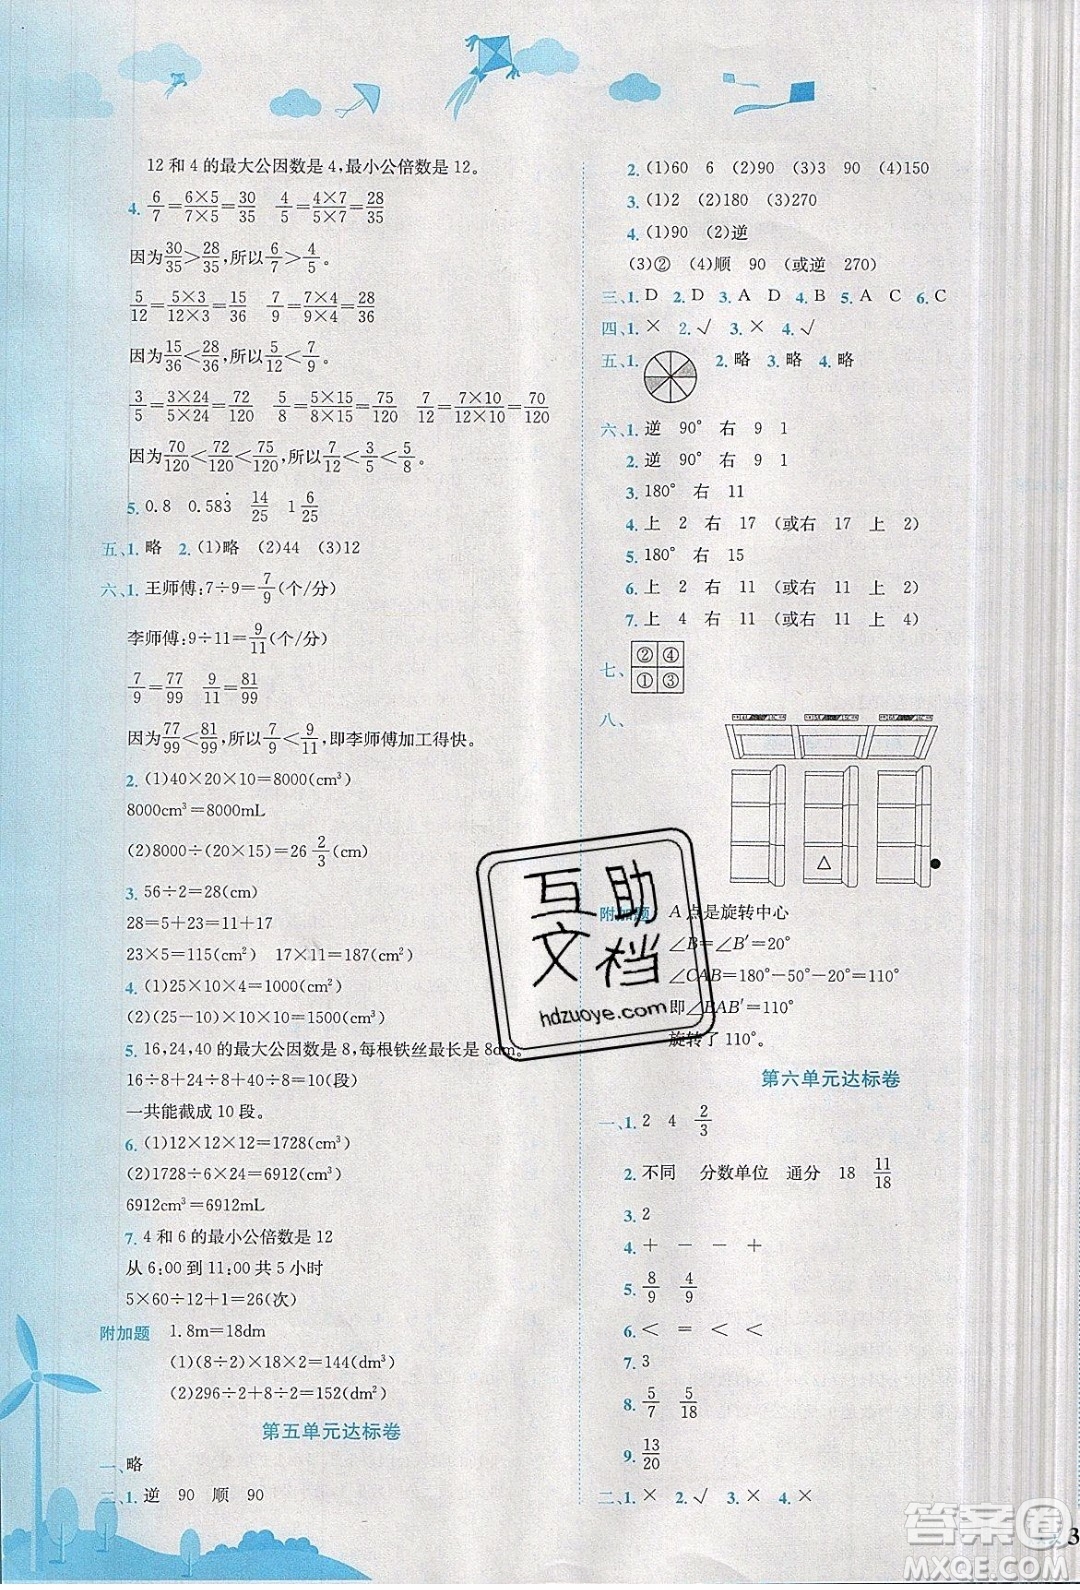 12 和 4 的最大公因数是 4,最小公倍数是 12。
4. 6/7=6×5/7×5=30/35 4/5=4×7/5×7=28/35
因为30/35>28/35,所以6/7>4/5。
5/12=5×3/12×3=15/36 7/9=7×4/9×4=28/36
因为15/36<28/36,所以5/12<7/9。
3/5=3×24/5×24=72/120 5/8=5×15/8×15=75/120 7/12=7×10/12×10=70/120
因为70/120<72/120<75/120,所以7/12<3/5<5/8。
5. 0.8 0.583̇ 14/25 1 6/25
五、1. 略 2. (1)略 (2)44 (3)12
六、1. 王师傅:7÷9=7/9(个/分)
李师傅:9÷11=9/11(个/分)
7/9=77/99 9/11=81/99
因为77/99<81/99,所以7/9<9/11,即李师傅加工得快。
2. (1)40×20×10=8000(cm³)
8000cm³=8000mL
(2)8000÷(20×15)=26 2/3(cm)
3. 56÷2=28(cm)
28=5+23=11+17
23×5=115(cm²) 17×11=187(cm²)
4. (1)25×10×4=1000(cm²)
(2)(25-10)×10×10=1500(cm³)
5. 16,24,40 的最大公因数是 8,每根铁丝最长是 8dm。
16÷8+24÷8+40÷8=10(段)
一共能截成 10 段。
6. (1)12×12×12=1728(cm³)
(2)1728÷6×24=6912(cm³)
6912cm³=6912mL
7. 4 和 6 的最小公倍数是 12
从 6:00 到 11:00 共 5 小时
5×60÷12+1=26(次)
附加题 1.8m=18dm
(1)(8÷2)×2×18=144(dm³)
(2)296÷2+8÷2=152(dm²)
第五单元达标卷
一、略
二、1. 逆 90 顺 90
2. (1)60 6 (2)90 (3)3 90 (4)150
3. (1)2 (2)180 (3)270
4. (1)90 (2)逆
(3)② (4)顺 90 (或逆 270)
三、1. D 2. D 3. A D 4. B 5. A C 6. C
四、1. × 2. √ 3. × 4. √
五、1. 2. 略 3. 略 4. 略
六、1. 逆 90° 右 9 1
2. 逆 90° 右 9 1
3. 180° 右 11
4. 上 2 右 17 (或右 17 上 2)
5. 180° 右 15
6. 上 2 右 11 (或右 11 上 2)
7. 上 4 右 11 (或右 11 上 4)
七、② ④
① ③
八、
附加题 A 点是旋转中心
∠B=∠B′=20°
∠CAB=180°-50°-20°=110°
即∠BAB′=110°
旋转了 110°。
第六单元达标卷
一、1. 2 4 2/3
2. 不同 分数单位 通分 18 11/18
3. 2
4. + - - +
5. 8/9 4/9
6. < = < =
7. 3
8. 5/7 5/18
9. 13/20
二、1. × 2. √ 3. × 4. ×
互助
文档
hdzuoye.com
答案圈
MXQE.COM
3